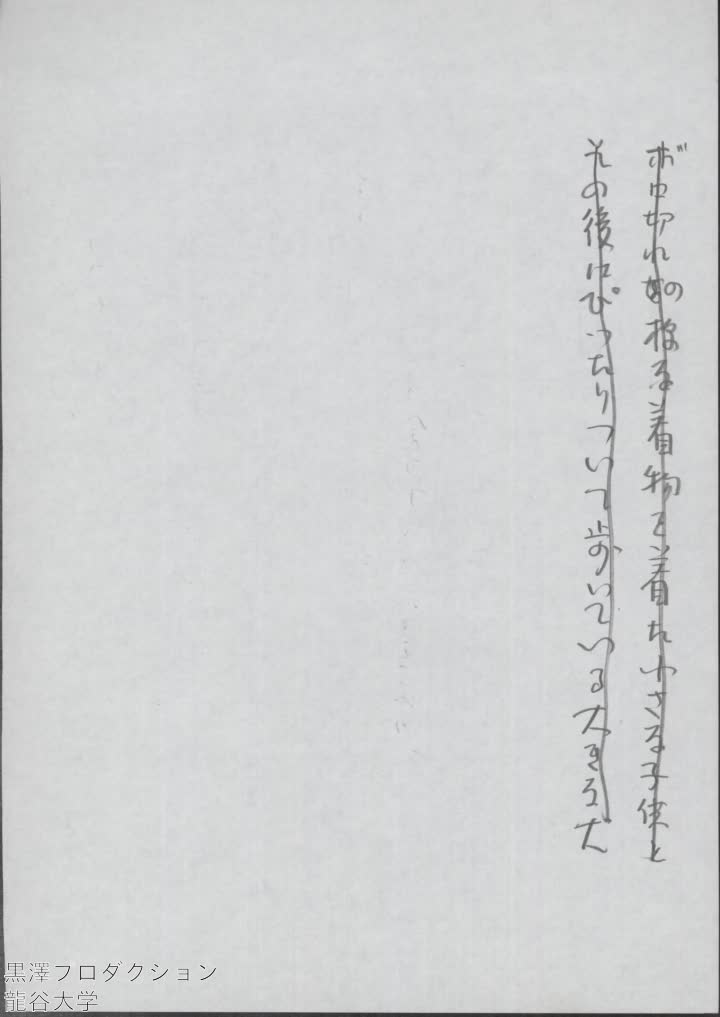 ボロ切れの様な着物を着た小さな子供と
その後にぴったりついて歩いている大きな犬
黒澤プロダクション
龍谷大学